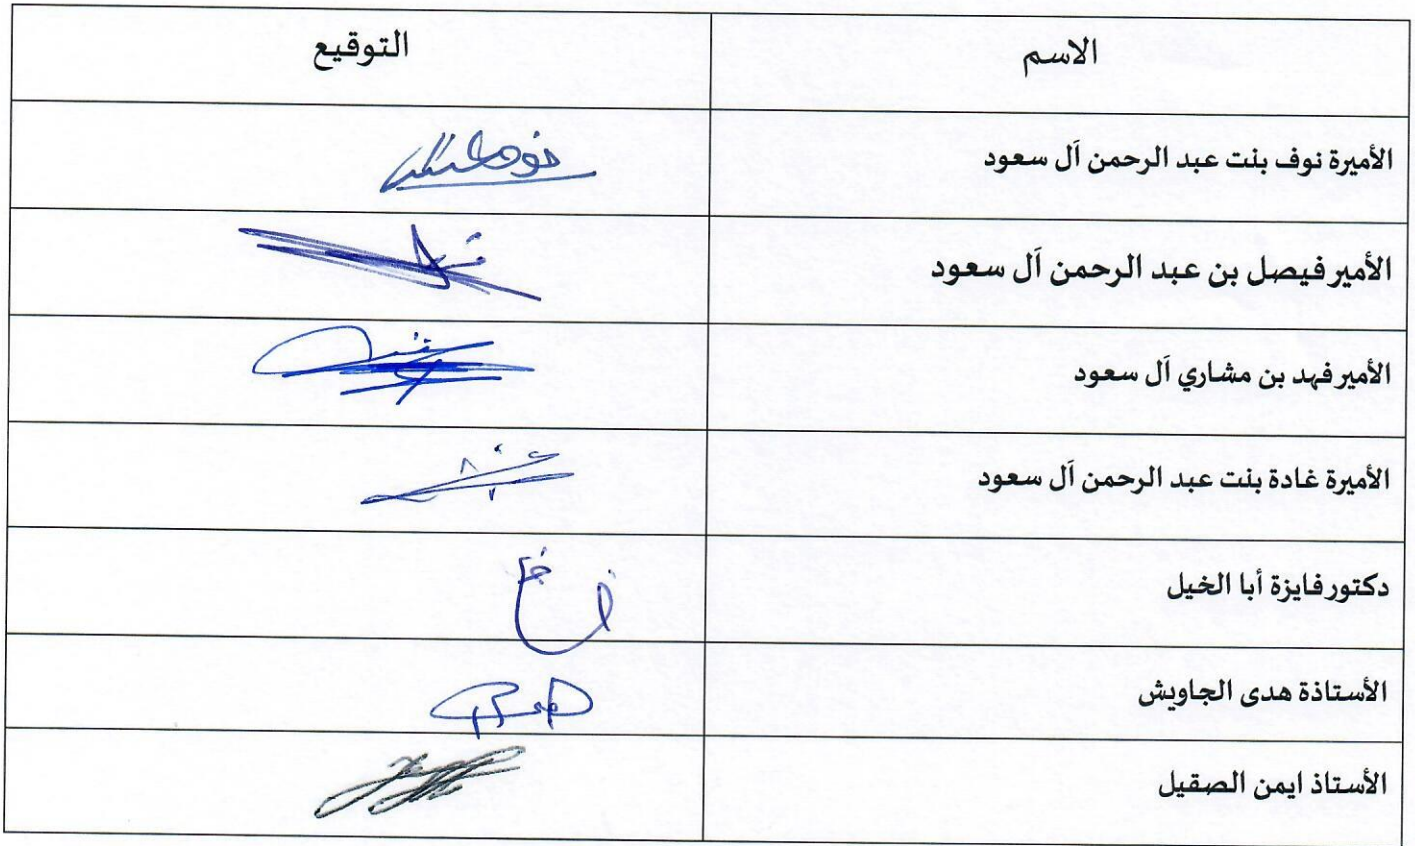 الاسم
التوقيع
الأميرة نوف بنت عبد الرحمن آل سعود
الأمير فيصل بن عبد الرحمن آل سعود
الأمير فهد بن مشاري آل سعود
الأميرة غادة بنت عبد الرحمن آل سعود
دكتور فايزة أبا الخيل
الأستاذة هدى الجاويش
الأستاذ ايمن الصقيل